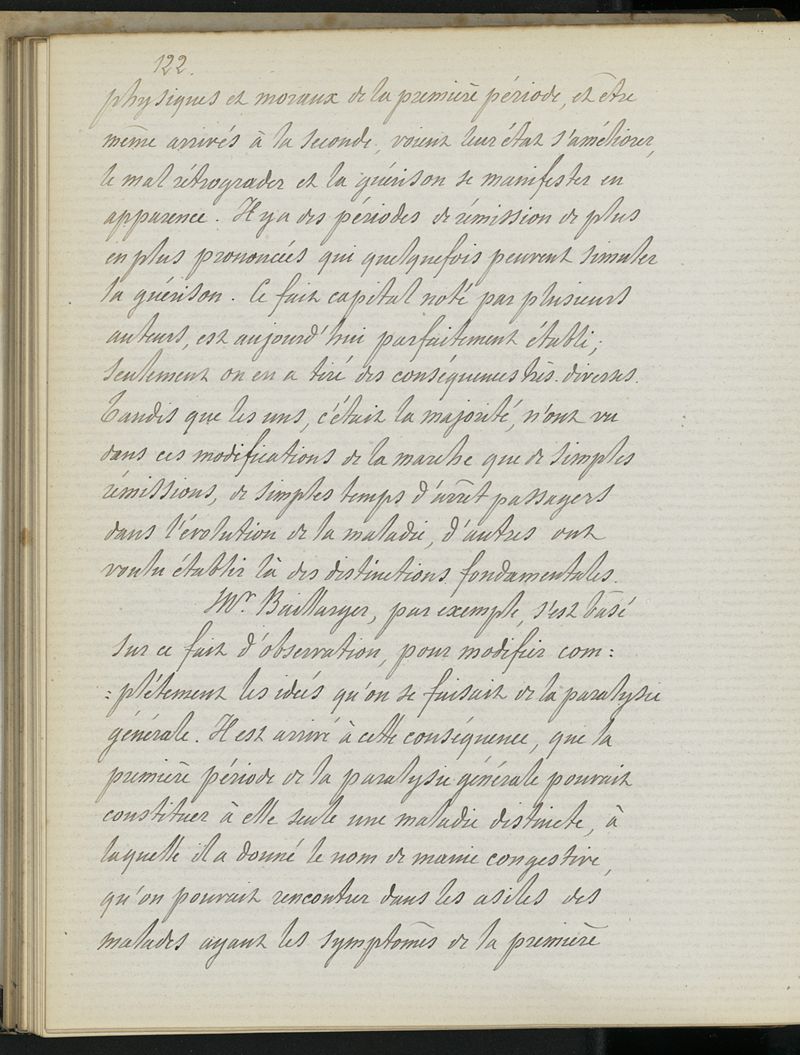 122.
physiques et moraux de la première période, et être
même arrivés à la seconde, voient leur état s'améliorer,
le mal rétrograder et la guérison se manifester en
apparence. Il y a des périodes de rémission de plus
en plus prononcées qui quelquefois peuvent simuler
la guérison. Ce fait capital noté par plusieurs
auteurs, est aujourd'hui parfaitement établi;
seulement on en a tiré des conséquences très-diverses.
Tandis que les uns, c'était la majorité, n'ont vu
dans ces modifications de la marche que de simples
rémissions, de simples temps d'arrêt passagers
dans l'évolution de la maladie, d'autres ont
voulu établir là des distinctions fondamentales.
Mr. Baillarger, par exemple, s'est basé
sur ce fait d'observation, pour modifier com:
:plétement les idées qu'on se faisait de la paralysie
générale. Il est arrivé à cette conséquence, que la
première période de la paralysie générale pouvait
constituer à elle seule une maladie distincte, à
laquelle il a donné le nom de manie congestive,
qu'on pouvait rencontrer dans les asiles des
malades ayant les symptômes de la première